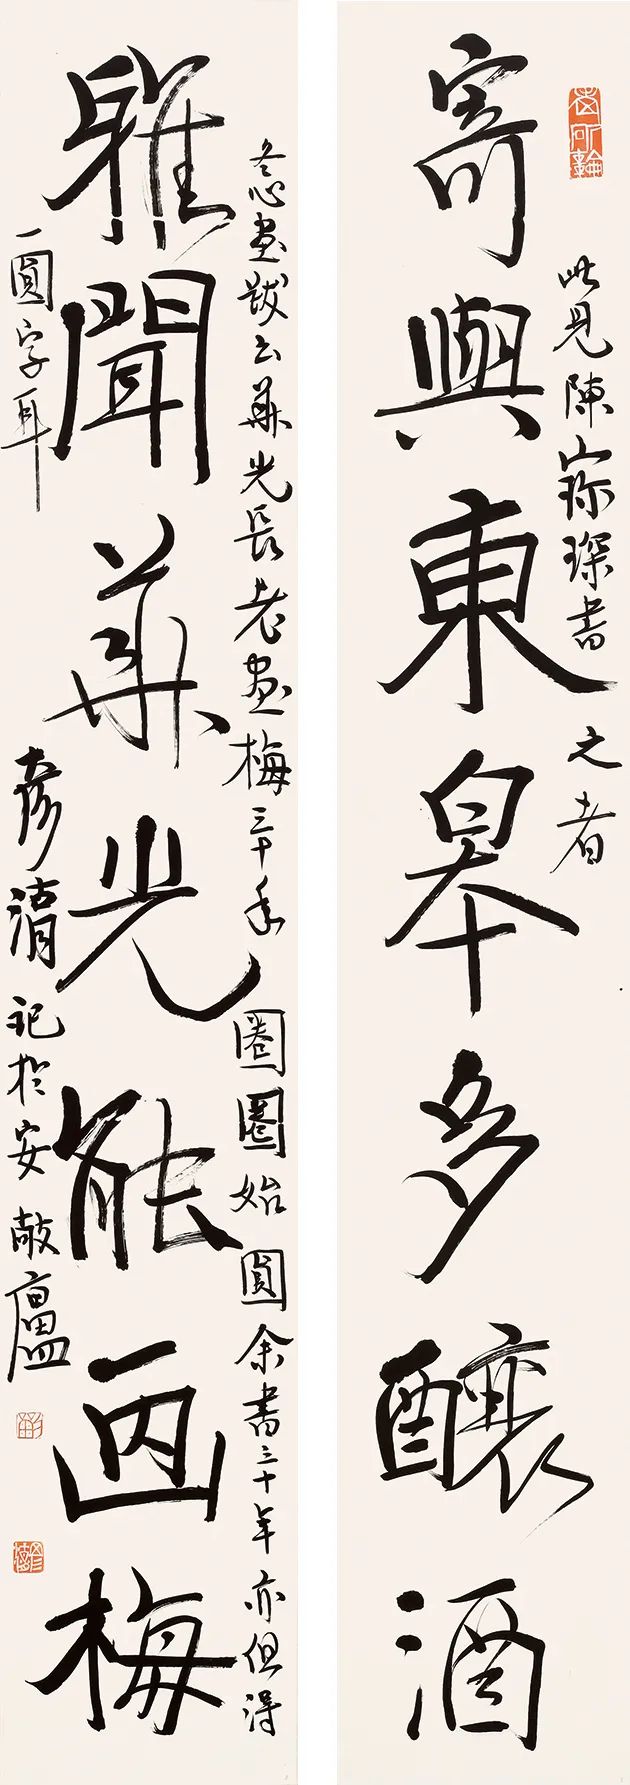 寄與東皋多釀酒
此見陳寶琛書之者
雅聞華光能画梅
冬心畫跋云華光長老畫梅三十年圈圈始圓余書三十年亦但得
一圓字耳
彥記於安敲廬